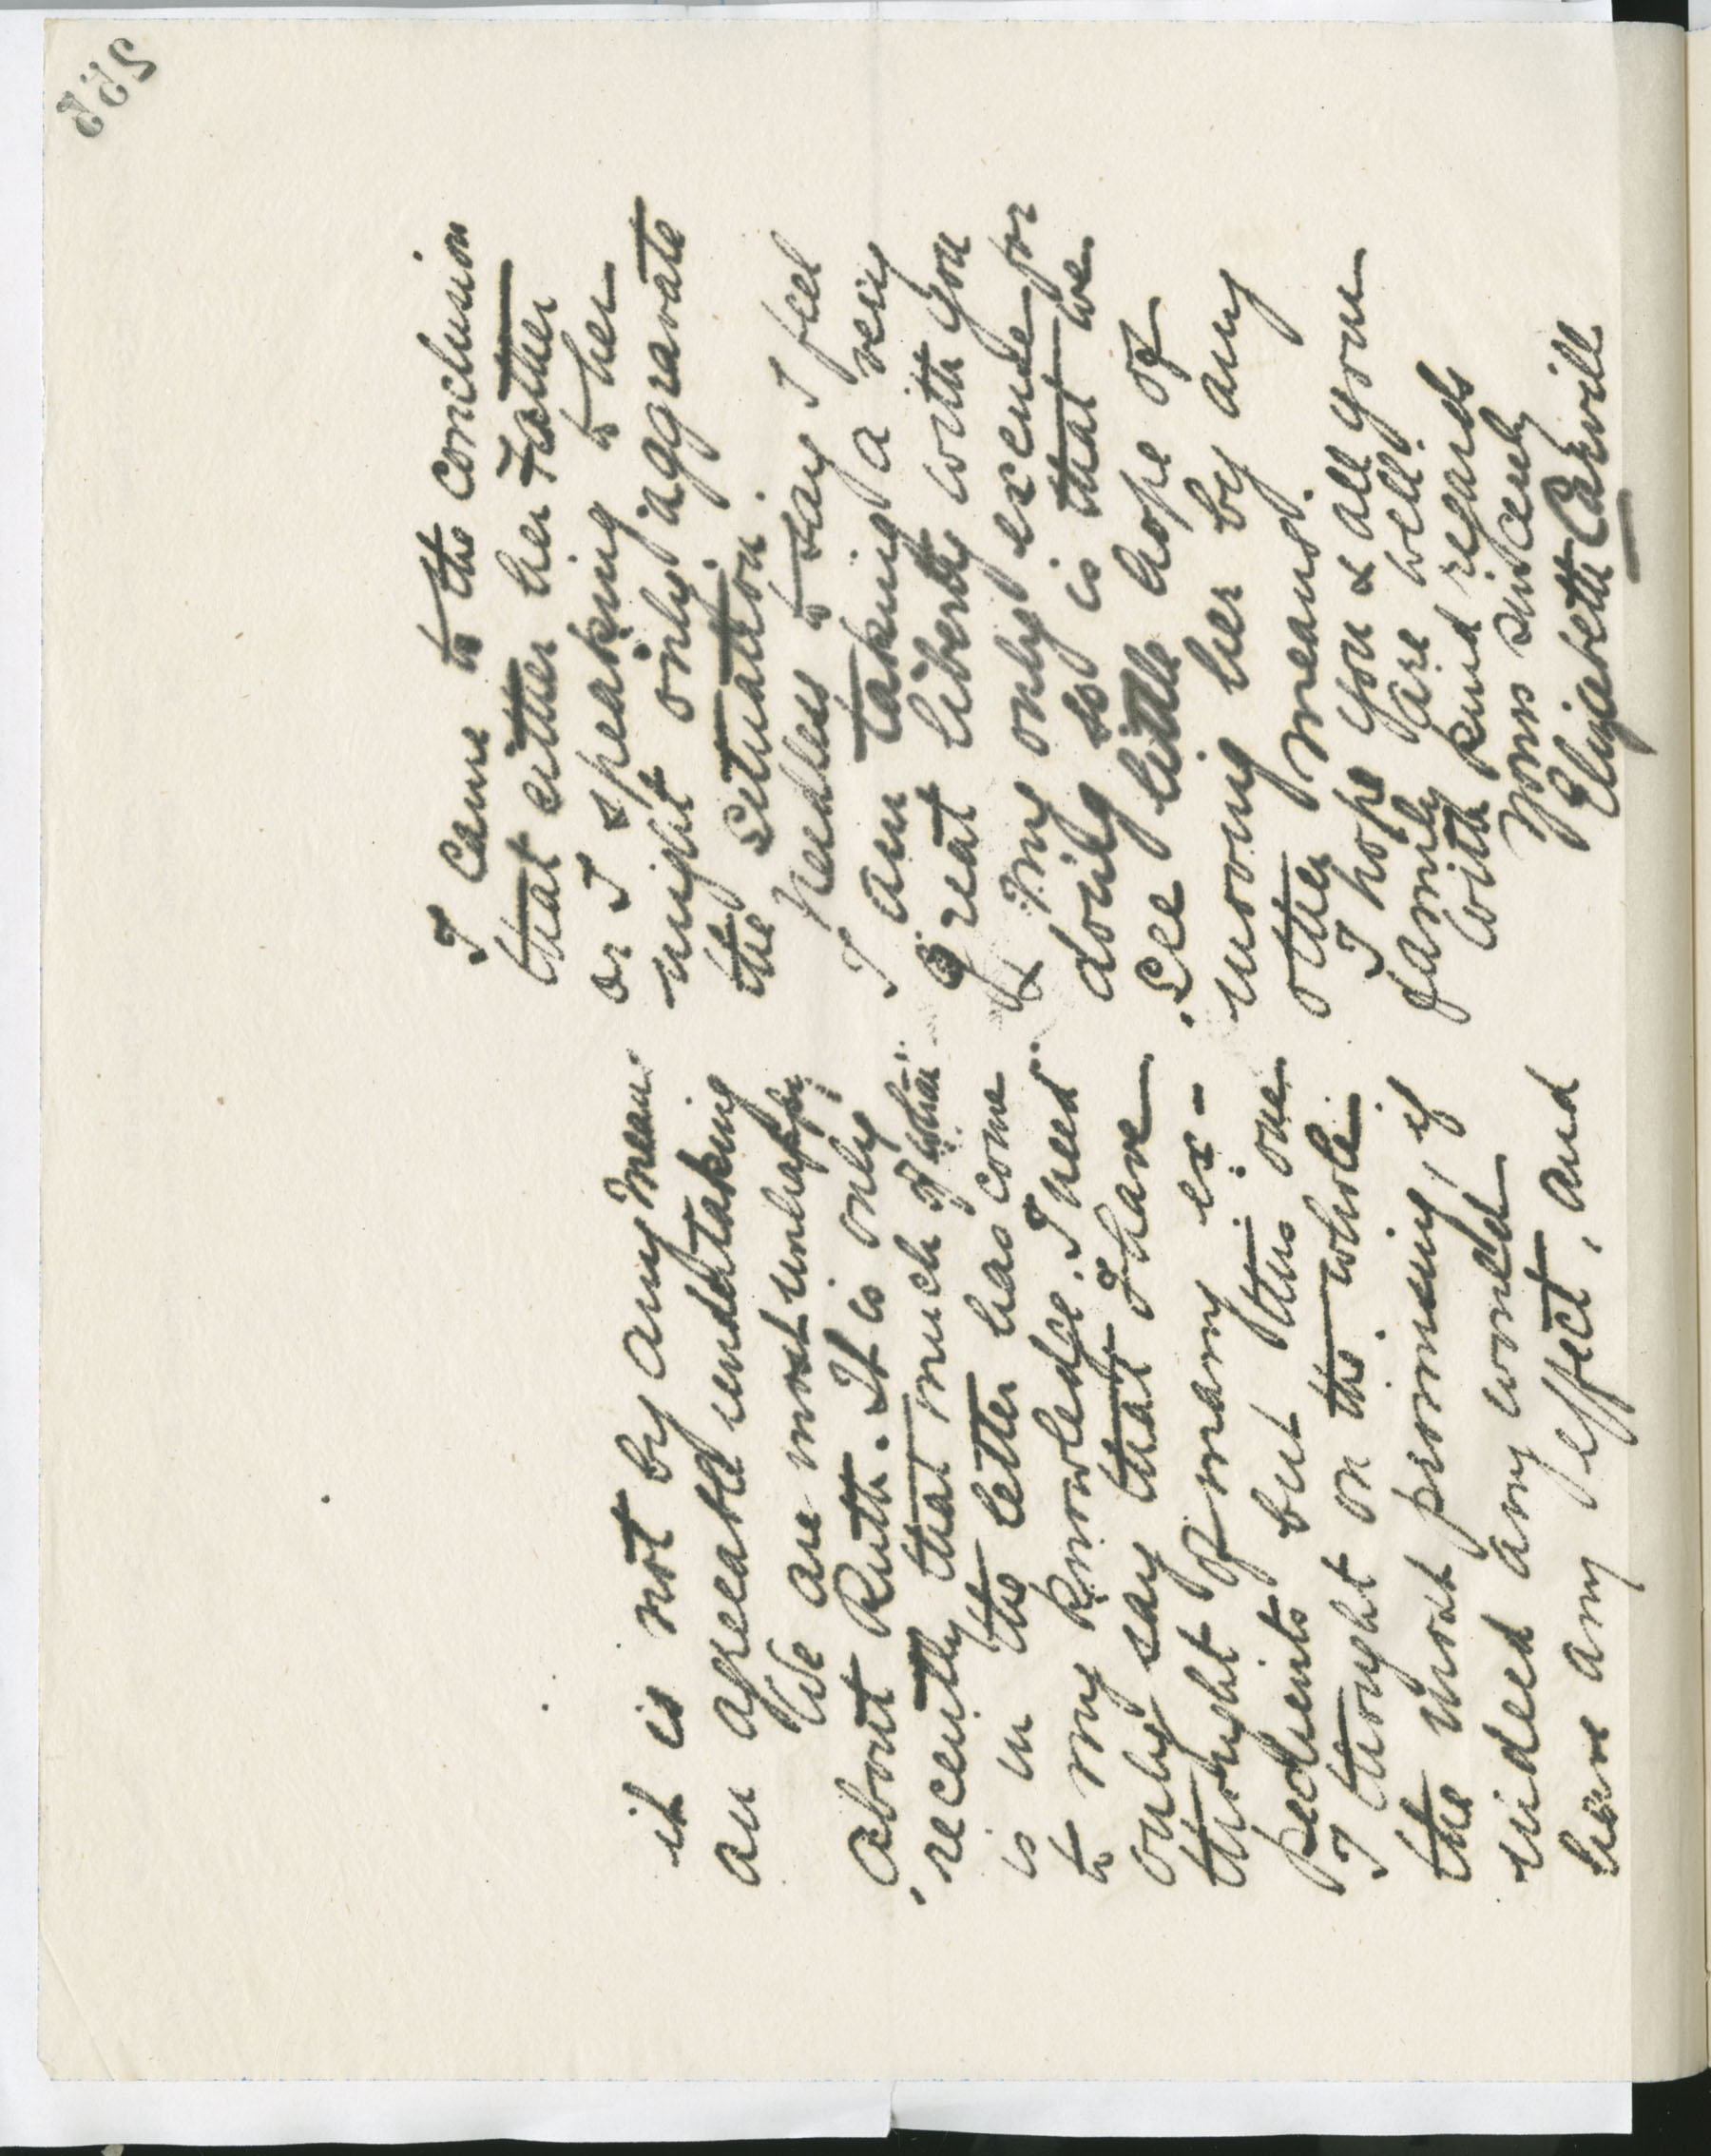 it is not by any mean
an agreeable undertaking
We are most unhappy
about Ruth. It is only
recently that much of what
is in the letter has come
to my knowledge. I need
only say that I have
thought of many ex-
pedients but this one
I thought on the whole
the most promising, if
indeed any would
have any effect, and
I came to the conclusion
that either her Father
or I speaking to her
might only aggravate
the situation.
Needless to say I feel
I am taking a very
great liberty with you
& my only excuse for
doing so is that we
see little hope of
moving her by any
other means.
I hope you & all your
family are well.
With kind regards
Yours sincerely
Elizabeth Carvill
255